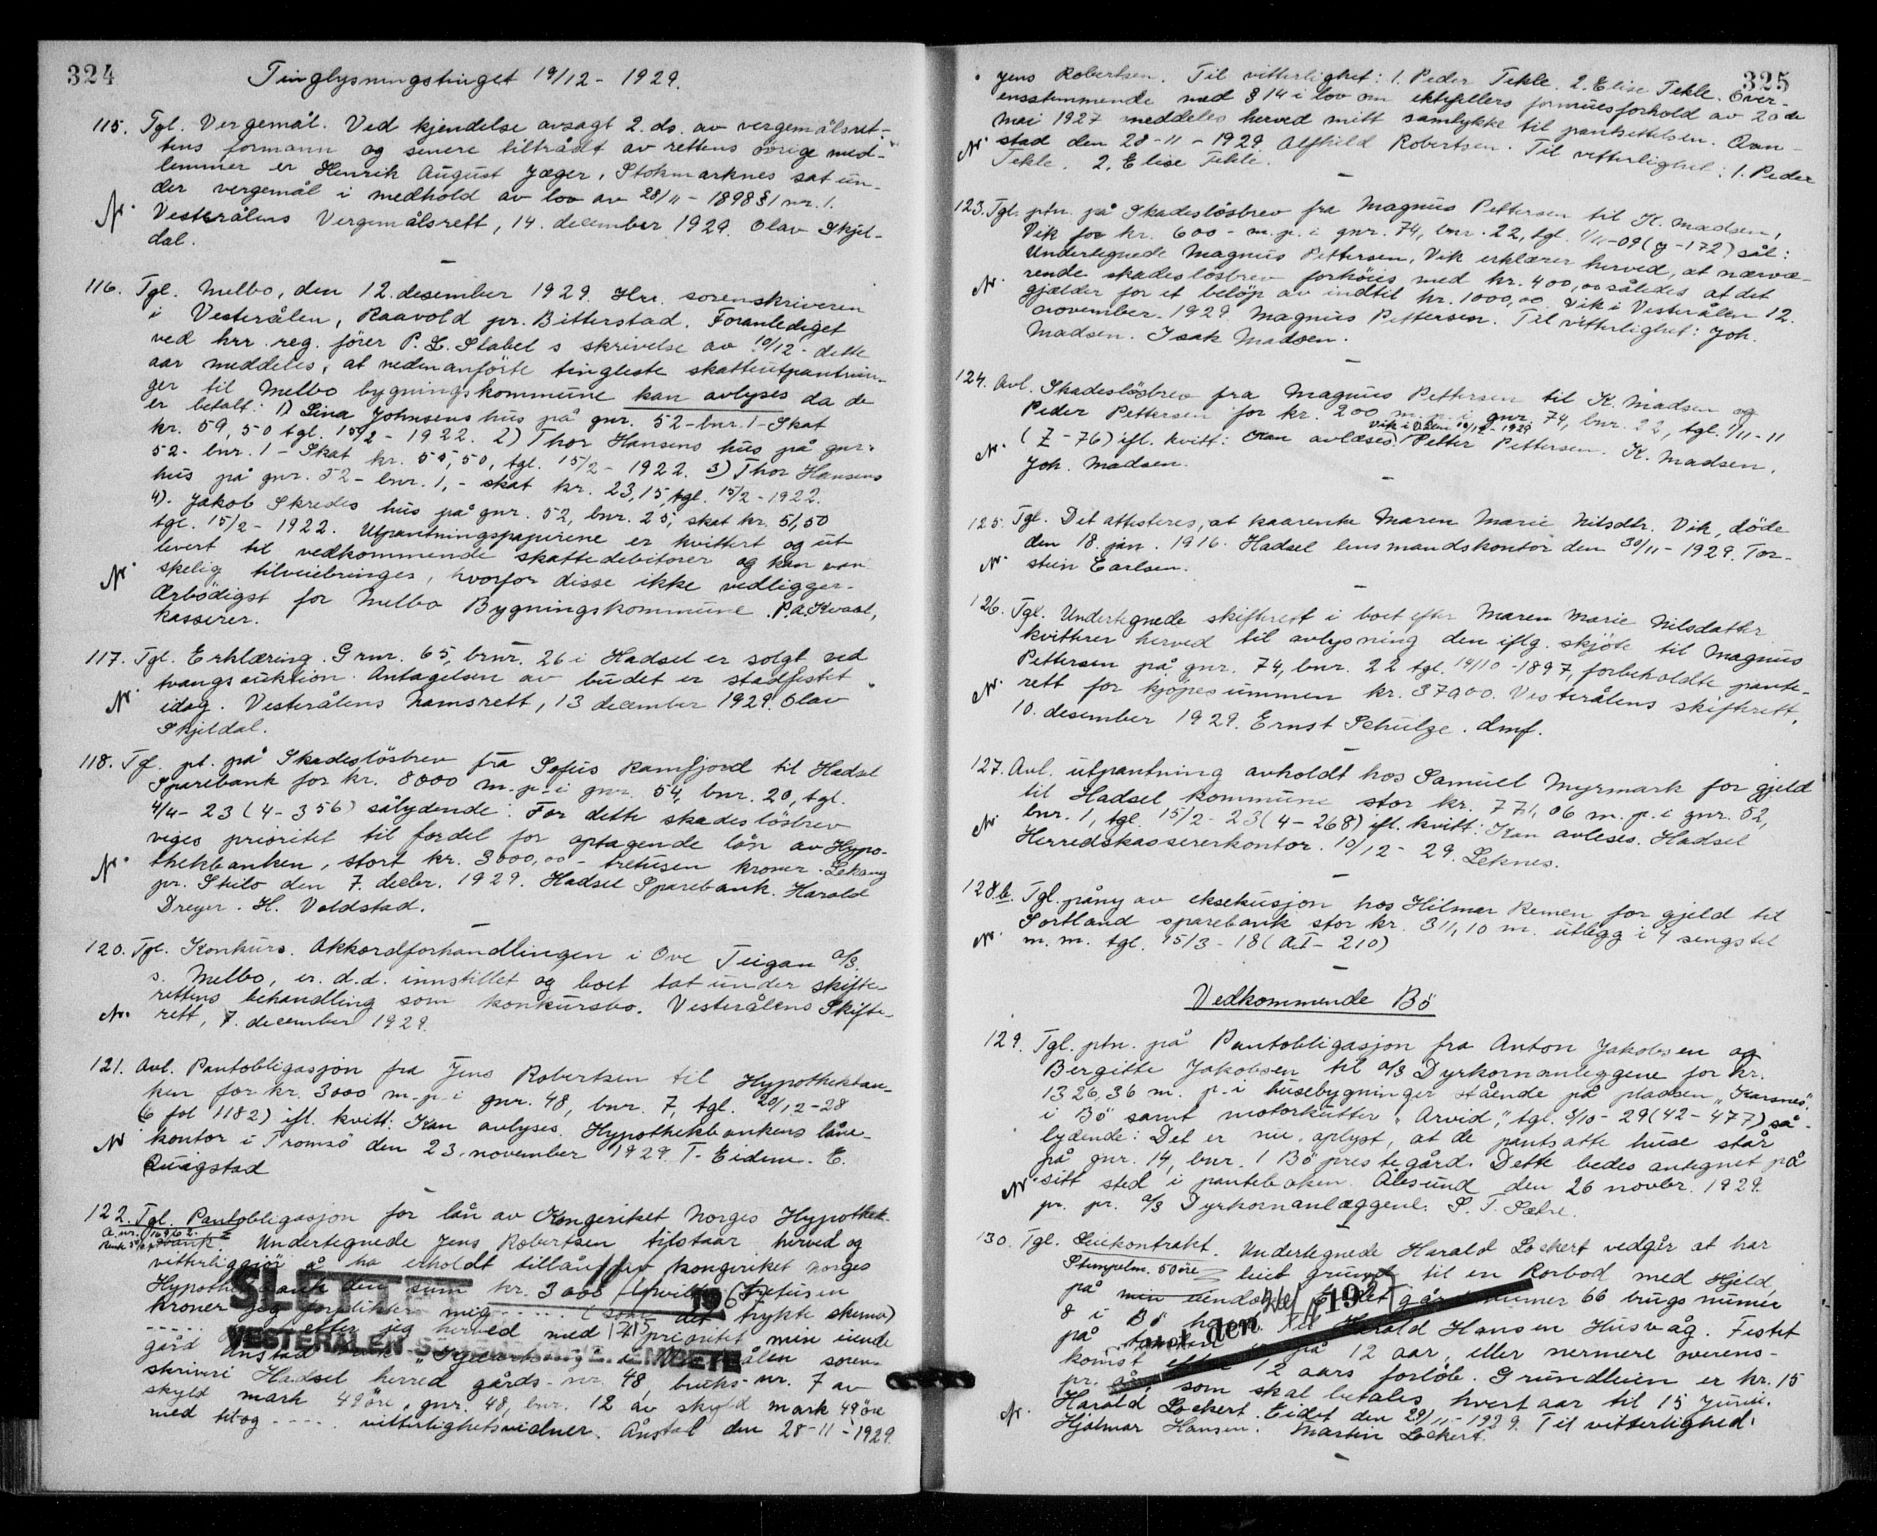 324
Tinglysningstinget 19/12 - 1929.
115. Tgl. Vergemål. Ved kjendelse avsagt 2. ds. av vergemålsret-
tens formann og senere tiltrådt av rettens øvrige med-
lemmer er Henrik August Jæger, Stokmarknes sat un-
der vergemål i medhold av lov av 28/11 - 1898 § 1 nr. 1.
Vesterålens Vergemålsrett, 14. december 1929. Olav Skjel-
dal.
116. Tgl. Melbo, den 12. desember 1929. Hrr. sorenskriveren
i Vesterålen, Raavold pr. Bitterstad. Foranlediget
ved hrr. reg. fører P. L. Stabel s skrivelse av 10/12 - dette
aar meddeles, at nedenanførte tingleste skatteutpantnin-
ger til Melbo bygningskommune kan avlyses da de
er betalt: 1) Lina Johnsens hus på gnr. 52 - bnr. 1 - Skat
kr. 59,50 tgl. 15/2 - 1922. 2) Thor Hansens hus på gnr.
52 - bnr. 1 - Skat kr. 55,50, tgl. 15/2 - 1922. 3) Thor Hansens
hus på gnr. 52 - bnr. 1, - skat kr. 23,15, tgl. 15/2 - 1922.
4). Jakob Skredes hus på gnr. 52, bnr. 25, skat kr. 51,50
tgl. 15/2 - 1922. Utpantningspapirene er kvittert og ut
levert til vedkommende skattedebitorer og kan van
skelig tilveiebringes, hvorfor disse ikke vedligger.
Ærbödigst for Melbo Bygningskommune. P.A. Kvaal,
kasserer.
117. Tgl. Erklæring. Grnr. 65, brnr. 26 i Hadsel er solgt ved
tvangsauktion. Antagelsen av budet er stadfestet
idag. Vesterålens namsrett, 13 december 1929. Olav
Skjeldal.
118. Tgl. pt. på Skadeslösbrev fra Sofus Ramfjord til Hadsel
Sparebank for kr. 8000 m. p. i gnr. 54, bnr. 20, tgl.
4/4 - 23 (4 - 356) sålydende: For dette skadeslösbrev
viges prioritet til fordel for optagende lån av Hypo-
thekbanken, stort kr. 3000,00 - tretusen kroner. Lekang
pr. Stilo den 7. decbr. 1929. Hadsel Sparebank. Harald
Dreyer. H. Voldstad.
120. Tgl. Konkurs. Akkordforhandlingen i Ove Teigan A/S
s. Melbo, er d.d. innstillet og boet tat under skifte-
rettens behandling som konkursbo. Vesterålens Skifte-
rett, 7. december 1929.
121. Avl. Pantobligasjon fra Jens Robertsen til Hypothekban-
ken for kr. 3000 m. p. i gnr. 48, bnr. 7, tgl. 20/12 - 28
(6 fol 1182) ifl. kvitt: Kan avlyses. Hypothekbankens låne-
kontor i Tromsö den 23. november 1929. T. Eidem. E.
Quigstad
122. Tgl. Pantobligasjon for lån av Kongeriket Norges Hypothek-
bank. Undertegnede Jens Robertsen tilstaar herved og
vitterliggjör å ha erholdt tillåns av Kongeriket Norges
Hypothekbank den sum kr. 3000 skriver tretusen
kroner jeg forplikter mig .... (som det trykte skema)
..... efter jeg herved med 1 prioritet min eiende
gård Anstad i Vesterålen soren-
skriveri Hadsel herred gårds - nr. 48, bruks - nr. 7 av
skyld mark 49 öre, gnr. 48, bnr. 12 av skyld mark 49 öre
med til og .... vitterlighetsvidner. Ånstad den 28 - 11 - 1929.
SLETTET 196
VESTERÅLEN SORENSKRIVEREMBETE
325
Jens Robertsen. Til vitterlighet: 1. Peder Tekle. 2. Elise Tekle. Over-
ensstemmende med § 14 i lov om ektefellers formuesforhold av 20de
mai 1927 meddeles herved mitt samtykke til pantsettelsen. Aan-
stad den 28 - 11 - 1929. Alfhild Robertsen. Til vitterlighet: 1. Peder
Tekle. 2. Elise Tekle.
123. Tgl. ptn. på Skadeslösbrev fra Magnus Pettersen til K. Madsen,
Vik for kr. 600 - m. p. i gnr. 74, bnr. 22, tgl. 1/11 - 09 (y - 172) sål:
Undertegnede Magnus Pettersen, Vik erklærer herved, at nærvæ-
rende skadeslösbrev forhöies med kr. 400,00 således at det
gjælder for et belöp av indtil kr. 1000,00. Vik i Vesterålen 12.
november. 1929 Magnus Pettersen. Til vitterlighet: Joh.
Madsen. Isak Madsen.
124. Avl. Skadeslösbrev fra Magnus Pettersen til K. Madsen og
Peder Pettersen for kr. 200 m. p. i gnr. 74, bnr. 22, tgl. 1/11 - 11
(Z - 76) ifl. kvitt: Kan avlæses. Vik i V.ålen 10/12 - 1929 Petter Pettersen. K. Madsen.
Joh. Madsen.
125. Tgl. Det attesteres, at kaarenke Maren Marie Nilsdtr. Vik, döde
den 18. jan. 1916. Hadsel lensmandskontor den 30/11 - 1929. Tor-
stein Carlsen.
126. Tgl. Undertegnede skifterett i boet efter Maren Marie Nilsdatter
kvitterer herved til avlysning den iflg. skjöte til Magnus
Pettersen på gnr. 74, bnr. 22 tgl. 19/10 - 1897, forbeholdte pante-
rett for kjöpesummen kr. 370,00. Vesterålens skifterett,
10. desember 1929. Ernst Schulze. dmf.
127. Avl. utpantning avholdt hos Samuel Myrmark for gjeld
til Hadsel kommune stor kr. 771,06 m. p. i gnr. 52,
bnr. 1, tgl. 15/2 - 23 (4 - 268) ifl. kvitt: Kan avleses. Hadsel
Herredskassererkontor. 10/12 - 29. Leknes.
128b. Tgl. påny av eksekusjon hos Hilmar Remen for gjeld til
Sortland sparebank stor kr. 311,10 m. utlegg i 4 sengstel
m. m. tgl. 15/3 - 18 (AI - 210)
Vedkommende Bö
129. Tgl. ptn. på Pantobligasjon fra Anton Jakobsen og
Bergitte Jakobsen til A/S Dyrkornanleggene for kr.
1326,36 m. p. i husebygninger stående på pladsen „Karsnes"
i Bö samt motorkutter „Arvid", tgl. 3/10 - 29 (42 - 477) så-
lydende: Det er nu oplyst, at de pantsatte huse står
på gnr. 14, bnr. 1 Bö prestegård. Dette bedes antegnet på
sitt sted i panteboken. Ålesund den 26 novbr. 1929.
pr. pr. A/S Dyrkornanlæggene. S. T. Sætre.
130. Tgl. Leiekontrakt. Undertegnede Harald Lockert vedgår at har
Stempelm. 50 öre leiet grunn til en Rorbod med Hjeld,
på min eiendom gårdsnumer 66 brugs numer
8 i Bö Harald Hansen Husvåg. Festet
på 12 aar, eller nermere overens-
komst efter 12 aars forlöb. Grundleien er kr. 15
pr. år, som skal betales hvert aar til 15 Juni.
Harald Lockert. Eidet den 29/11 - 1929. Til vitterlighed:
Hjalmar Hansen. Martin Lockert.